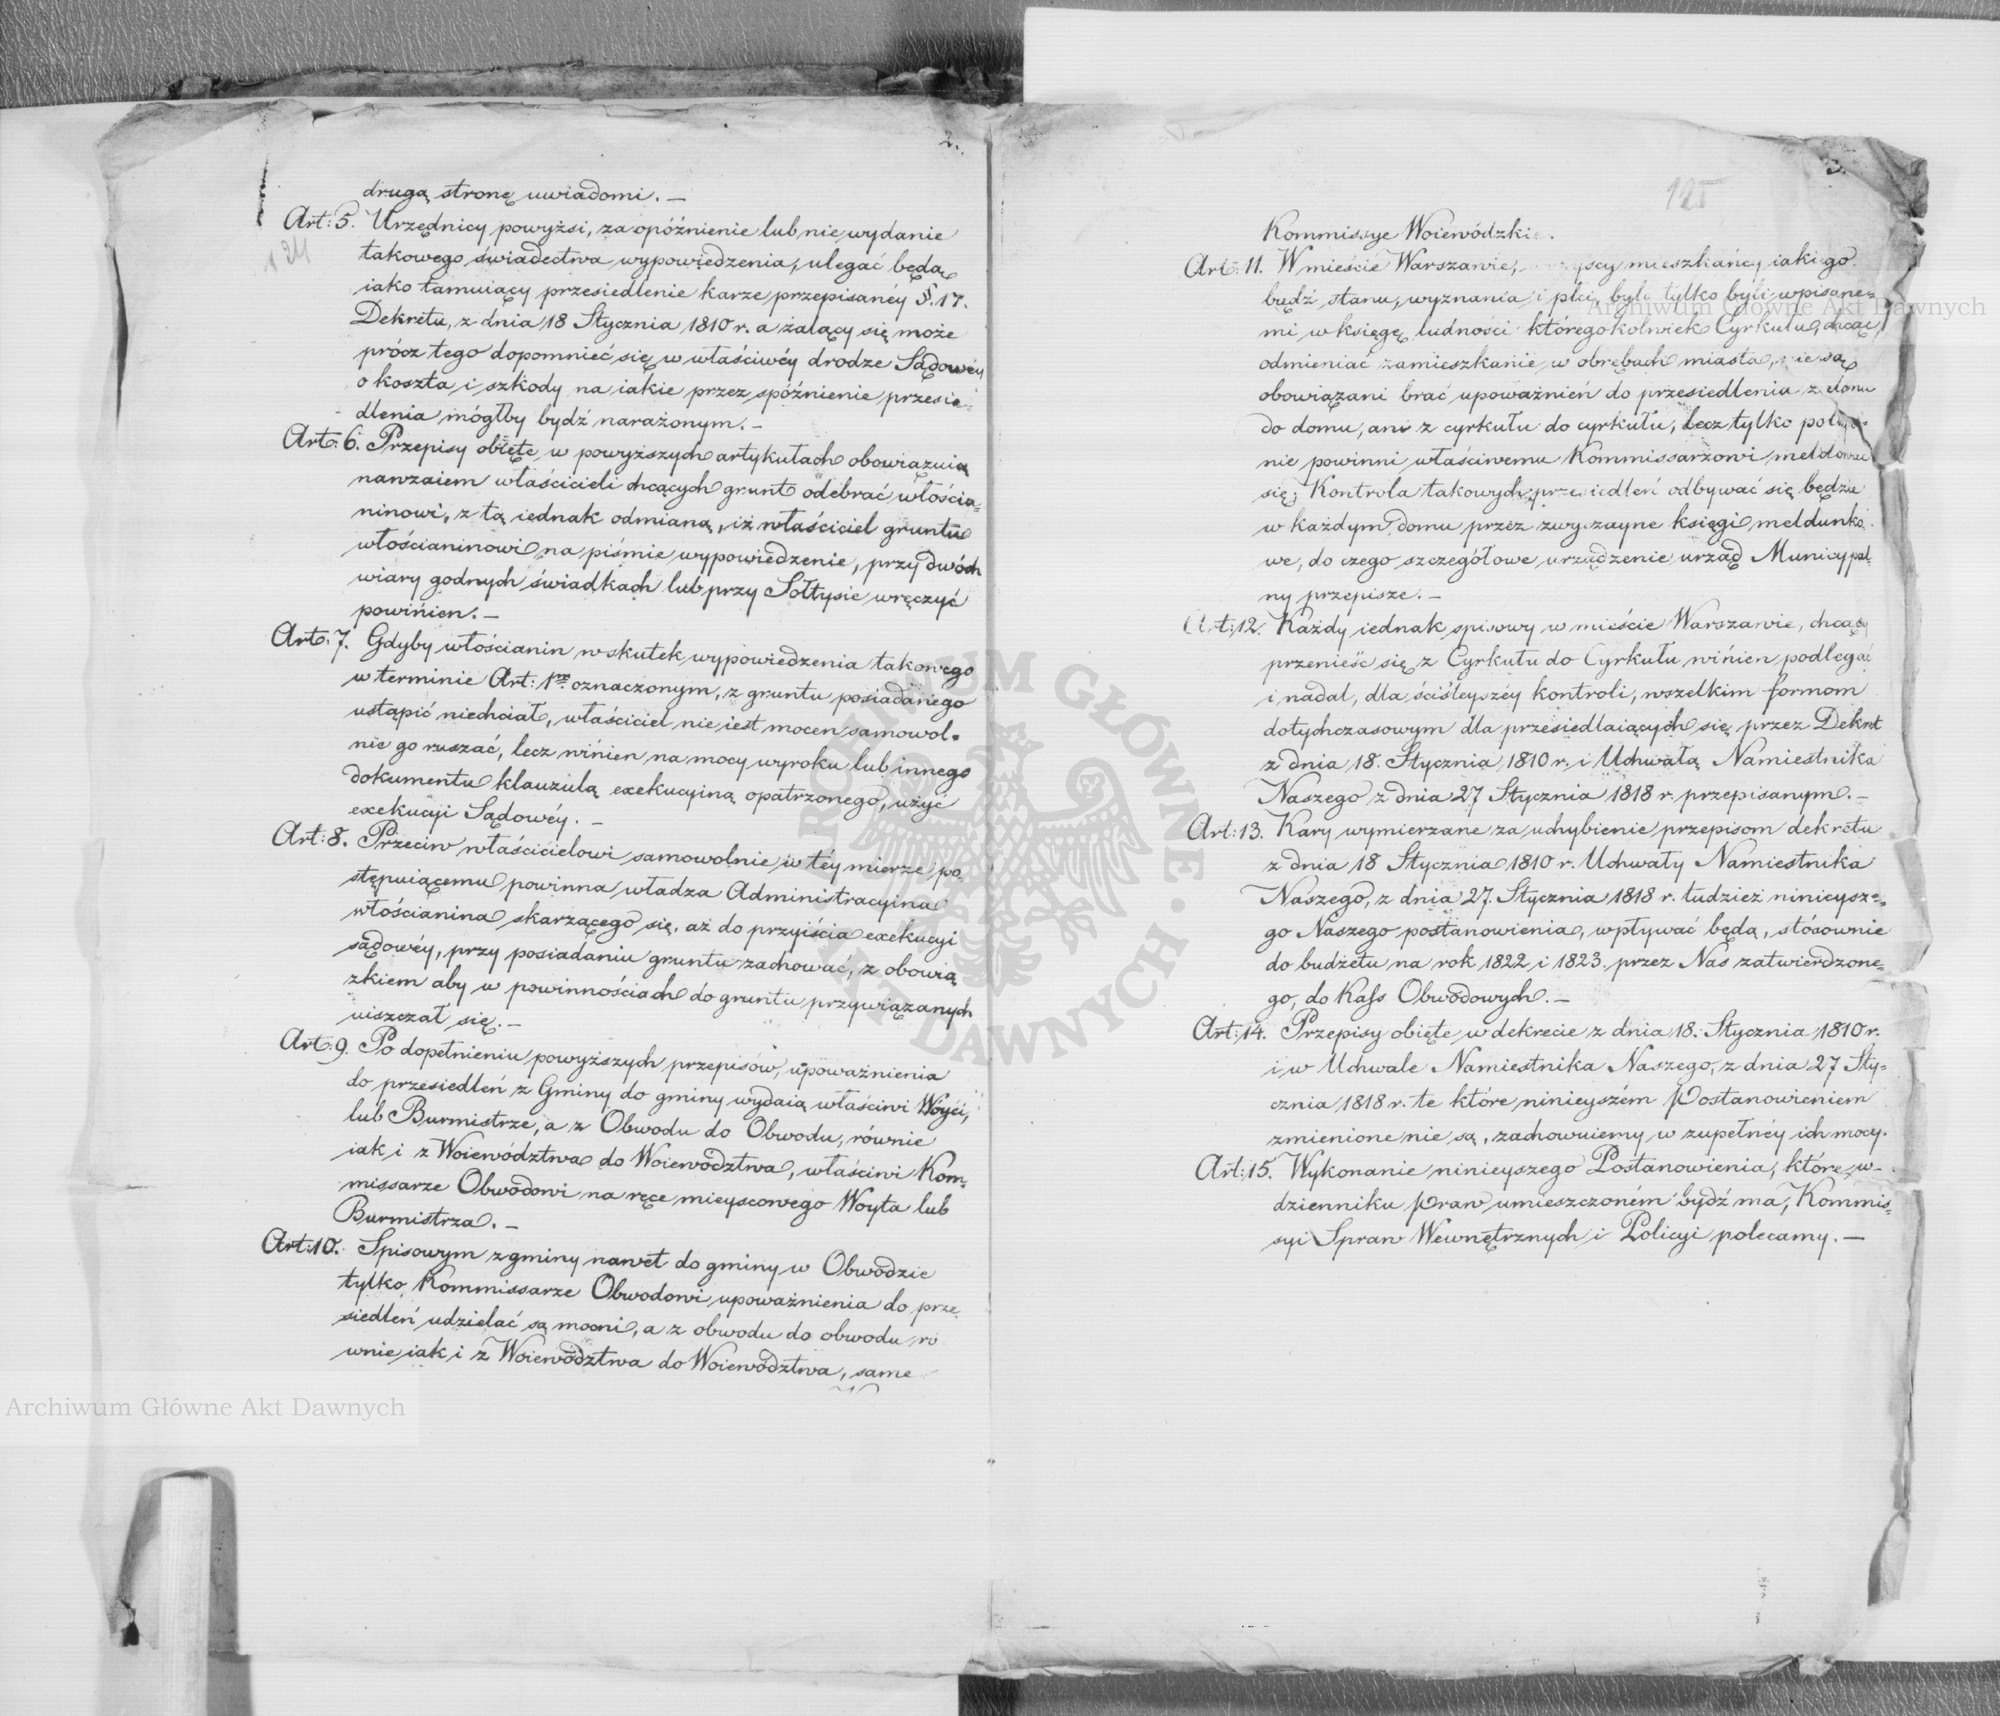 2.
drugą stronę uwiadomi. —
Art: 5. Urzędnicy powyżsi, za opóźnienie lub nie wydanie
124
takowego świadectwa wypowiedzenia, ulegać będą
iako tamuiący przesiedlenie karze przepisanéy §. 17.
Dekretu, z dnia 18 Stycznia 1810 r. a żalący się może
prócz tego dopomnieć się w właściwéy drodze Sądowéy
o koszta i szkody na iakie przez spóźnienie przesie-
dlenia mógłby bydź narażonym. —
Art: 6. Przepisy obięte w powyższych artykułach obowiązuią
nawzaiem właścicieli chcących grunt odebrać włościa-
ninowi, z tą iednak odmianą, iż właściciel gruntu
włościaninowi na piśmie wypowiedzenie, przy dwóch
wiary godnych świadkach lub przy Sołtysie wręczyć
powinien. —
Art: 7. Gdyby włościanin w skutek wypowiedzenia takowego
w terminie Art: 1m oznaczonym, z gruntu posiadanego
ustąpić niechciał, właściciel nie iest mocen samowol-
nie go ruszać, lecz winien na mocy wyroku lub innego
dokumentu klauzulą exekucyiną opatrzonego, użyć
exekucyi Sądowéy. —
Art: 8. Przeciw właścicielowi samowolnie w téy mierze po-
stępuiącemu powinna władza Administracyina
włościanina skarżącego się, aż do przyiścia exekucyi
sądowéy, przy posiadaniu gruntu zachować, z obowią
zkiem aby w powinnościach do gruntu przywiązanych
uiszczał się. —
Art: 9. Po dopełnieniu powyższych przepisów, upoważnienia
do przesiedleń z Gminy do gminy wydaią właściwi Wóyci,
lub Burmistrze, a z Obwodu do Obwodu, równie
iak i z Woiewództwa do Woiewództwa, właściwi Kom-
missarze Obwodowi na ręce mieyscowego Woyta lub
Burmistrza. —
Art: 10. Spisowym z gminy nawet do gminy w Obwodzie
tylko Kommissarze Obwodowi upoważnienia do prze
siedleń udzielać są mocni, a z obwodu do obwodu ró
wnie iak i z Woiewództwa do Woiewództwa, same
3.
125
Kommissye Woiewódzkie.
Art: 11. W mieście Warszawie, mieszkańcy iakiego
bądź stanu, wyznania i płci, byle tylko byli wpisane-
mi w księgę ludności któregokolwiek Cyrkułu, chcąc
odmieniać zamieszkanie w obrębach miasta, nie są
obowiązani brać upoważnień do przesiedlenia z domu
do domu, ani z cyrkułu do cyrkułu, lecz tylko
nie powinni właściwemu Kommissarzowi meldować
się; Kontrola takowych przesiedleń odbywać się będzie
w każdym domu przez zwyczayne księgi meldunko
we, do czego szczegółowe urządzenie urząd Municypal-
ny przepisze. —
Art: 12. Każdy iednak spisowy w mieście Warszawie, chcący
przenieść się z Cyrkułu do Cyrkułu winien podlegać
i nadal, dla ściśleyszéy kontroli, wszelkim formom
dotychczasowym dla przesiedlaiących się, przez Dekret
z dnia 18. Stycznia 1810 r. i Uchwałą Namiestnika
Naszego z dnia 27 Stycznia 1818 r. przepisanym. —
Art: 13. Kary wymierzane za uchybienie przepisom dekretu
z dnia 18 Stycznia 1810 r. Uchwały Namiestnika
Naszego, z dnia 27. Stycznia 1818 r. tudzież ninieysze-
go Naszego postanowienia, wpływać będą, stósownie
do budżetu na rok 1822 i 1823. przez Nas zatwierdzone-
go, do Kass Obwodowych. —
Art: 14. Przepisy obięte w dekrecie z dnia 18. Stycznia 1810 r.
i w Uchwale Namiestnika Naszego, z dnia 27 Sty-
cznia 1818 r. te które ninieyszém Postanowieniem
zmienione nie są, zachowuiemy w zupełnéy ich mocy.
Art: 15. Wykonanie ninieyszego Postanowienia, które w
dzienniku Praw umieszczoném bydź ma, Kommis-
syi Spraw Wewnętrznych i Policyi polecamy. —
Archiwum Główne Akt Dawnych
Archiwum Główne Akt Dawnych
ARCHIWUM GŁÓWNE • AKT DAWNYCH •